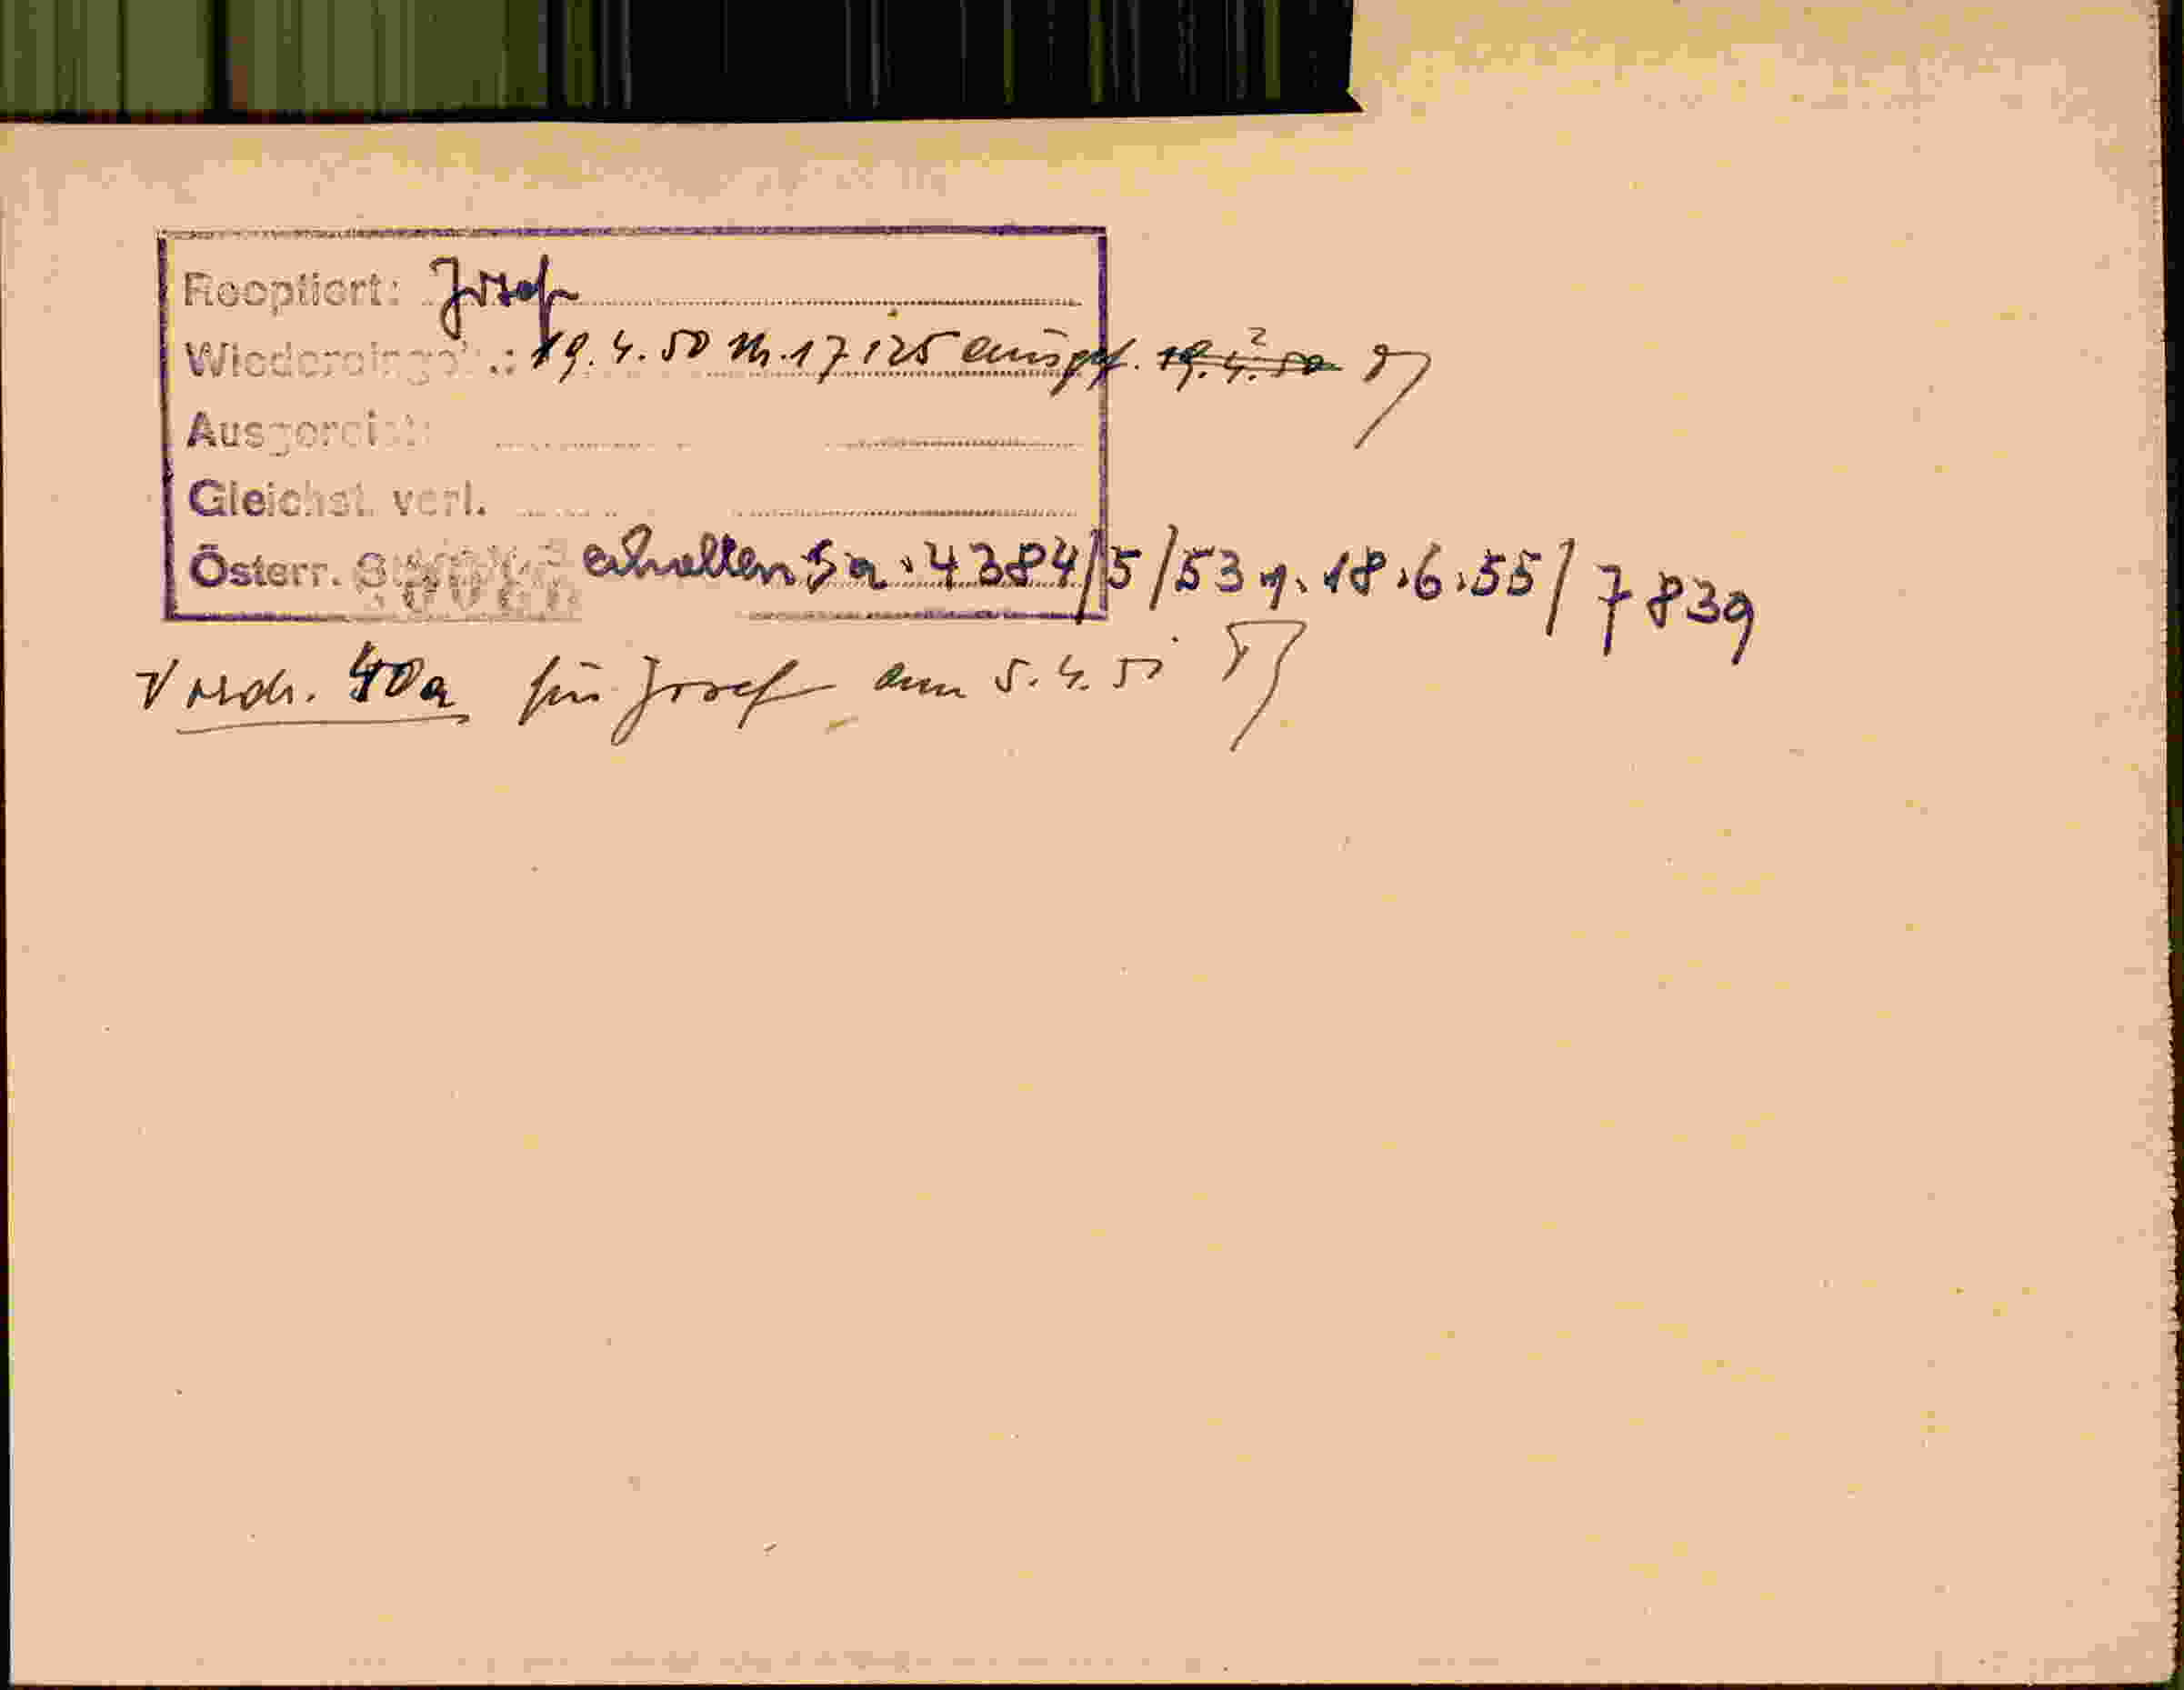 Reoptiert: Josef
Wiedereingeb.: 19.4.50 Nr. 17125 ausgef. 19.4.50
Ausgereist:
Gleichst. verl.
Österr. erhalten Ia. 4384/5/53 v. 18.6.55/7839
Vordr. 40a für Josef am 5.4.51